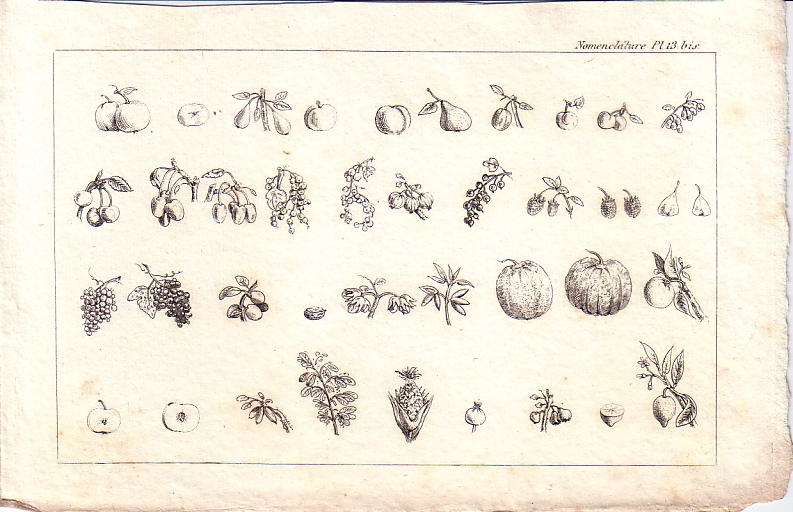 Nomenclature Pl 13 bis.